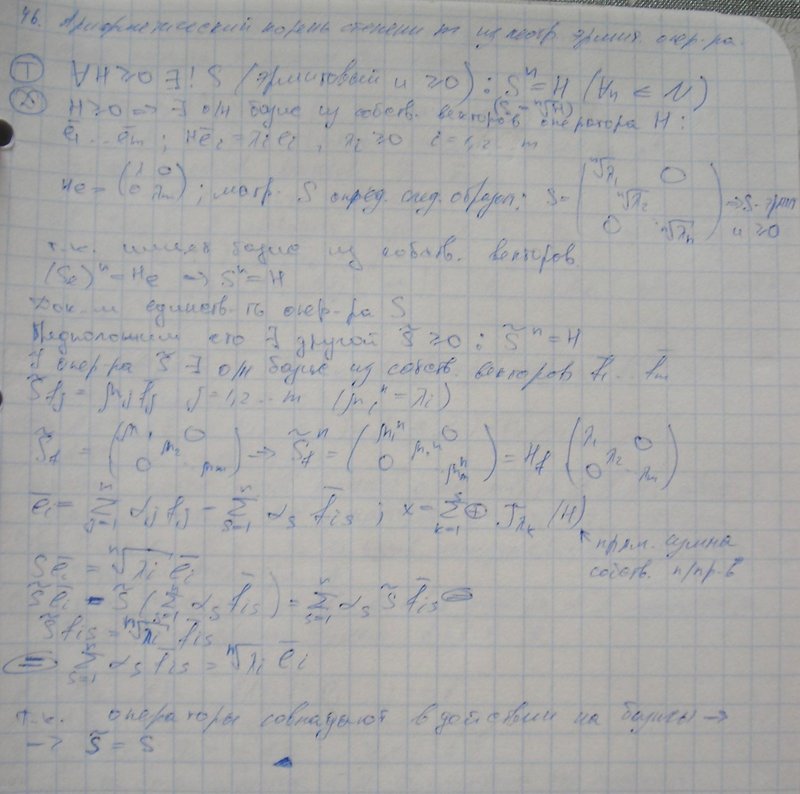 46. Арифметический корень степени m из неотр. эрмит. опер-ра.
Т ∀H≥0 ∃! S (эрмитовый и ≥0) : Sⁿ=H (∀n ∈ N)
(S=ⁿ√H)
Д H≥0 → ∃ о/н базис из собств. векторов оператора H:
ē₁...ēₘ ; Hēᵢ=λᵢēᵢ , λᵢ≥0 i=1,2.. m
He=(λ₁ 0 0 λₘ) ; матр. S опред. след. образом: S=(ⁿ√λ₁ 0 ⁿ√λ₂ 0 ⁿ√λₘ) → S-эрм и ≥0
т.к. имеет базис из собств. векторов
(Se)ⁿ=He → Sⁿ=H
Док-м единств-ть опер-ра S
Предположим что ∃ другой S̃≥0 : S̃ⁿ=H
У опер-ра S̃ ∃ о/н базис из собств векторов f̄₁...f̄ₘ
S̃fⱼ=μⱼfⱼ j=1,2...m (μᵢⁿ=λᵢ)
S̃f=(μ₁ 0 μ₂ 0 μₘ) → S̃fⁿ=(μ₁ⁿ 0 μ₂ⁿ 0 μₘⁿ)=Hf (λ₁ 0 λ₂ 0 λₘ)
ēᵢ=∑ⱼ₌₁ αⱼfⱼ=∑ₛ₌₁ αₛ f̄ᵢₛ ; x=∑ₖ₌₁ ⊕ Tλₖ(H)
прям. сумма
собств. п/пр-в
Sēᵢ=ⁿ√λᵢ ēᵢ
S̃ēᵢ=S̃(∑ₛ₌₁ αₛ f̄ᵢₛ)=∑ₛ₌₁ αₛ S̃f̄ᵢₛ =
S̃fᵢₛ=ⁿ√λᵢ f̄ᵢₛ
= ∑ₛ₌₁ αₛ f̄ᵢₛ=ⁿ√λᵢ ēᵢ
т.к. операторы совпадают в действии на базисы →
→ S̃=S